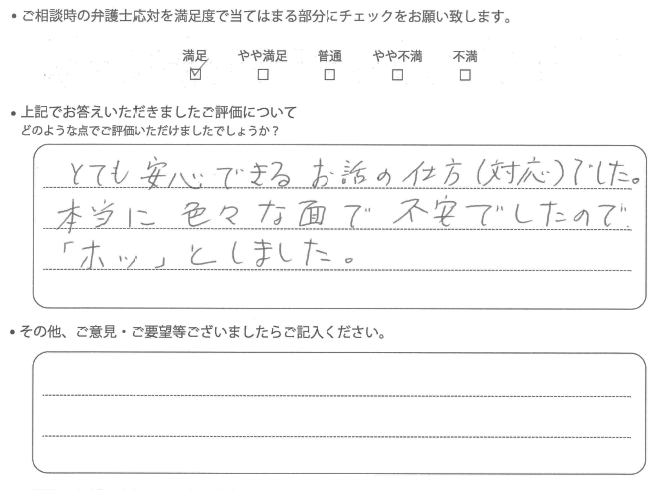 • ご相談時の弁護士応対を満足度で当てはまる部分にチェックをお願い致します。
満足 やや満足 普通 やや不満 不満
☑ □ □ □ □
• 上記でお答えいただきましたご評価について
どのような点でご評価いただけましたでしょうか？
とても安心できるお話の仕方(対応)でした。
本当に色々な面で不安でしたので
「ホッ」としました。
• その他、ご意見・ご要望等ございましたらご記入ください。